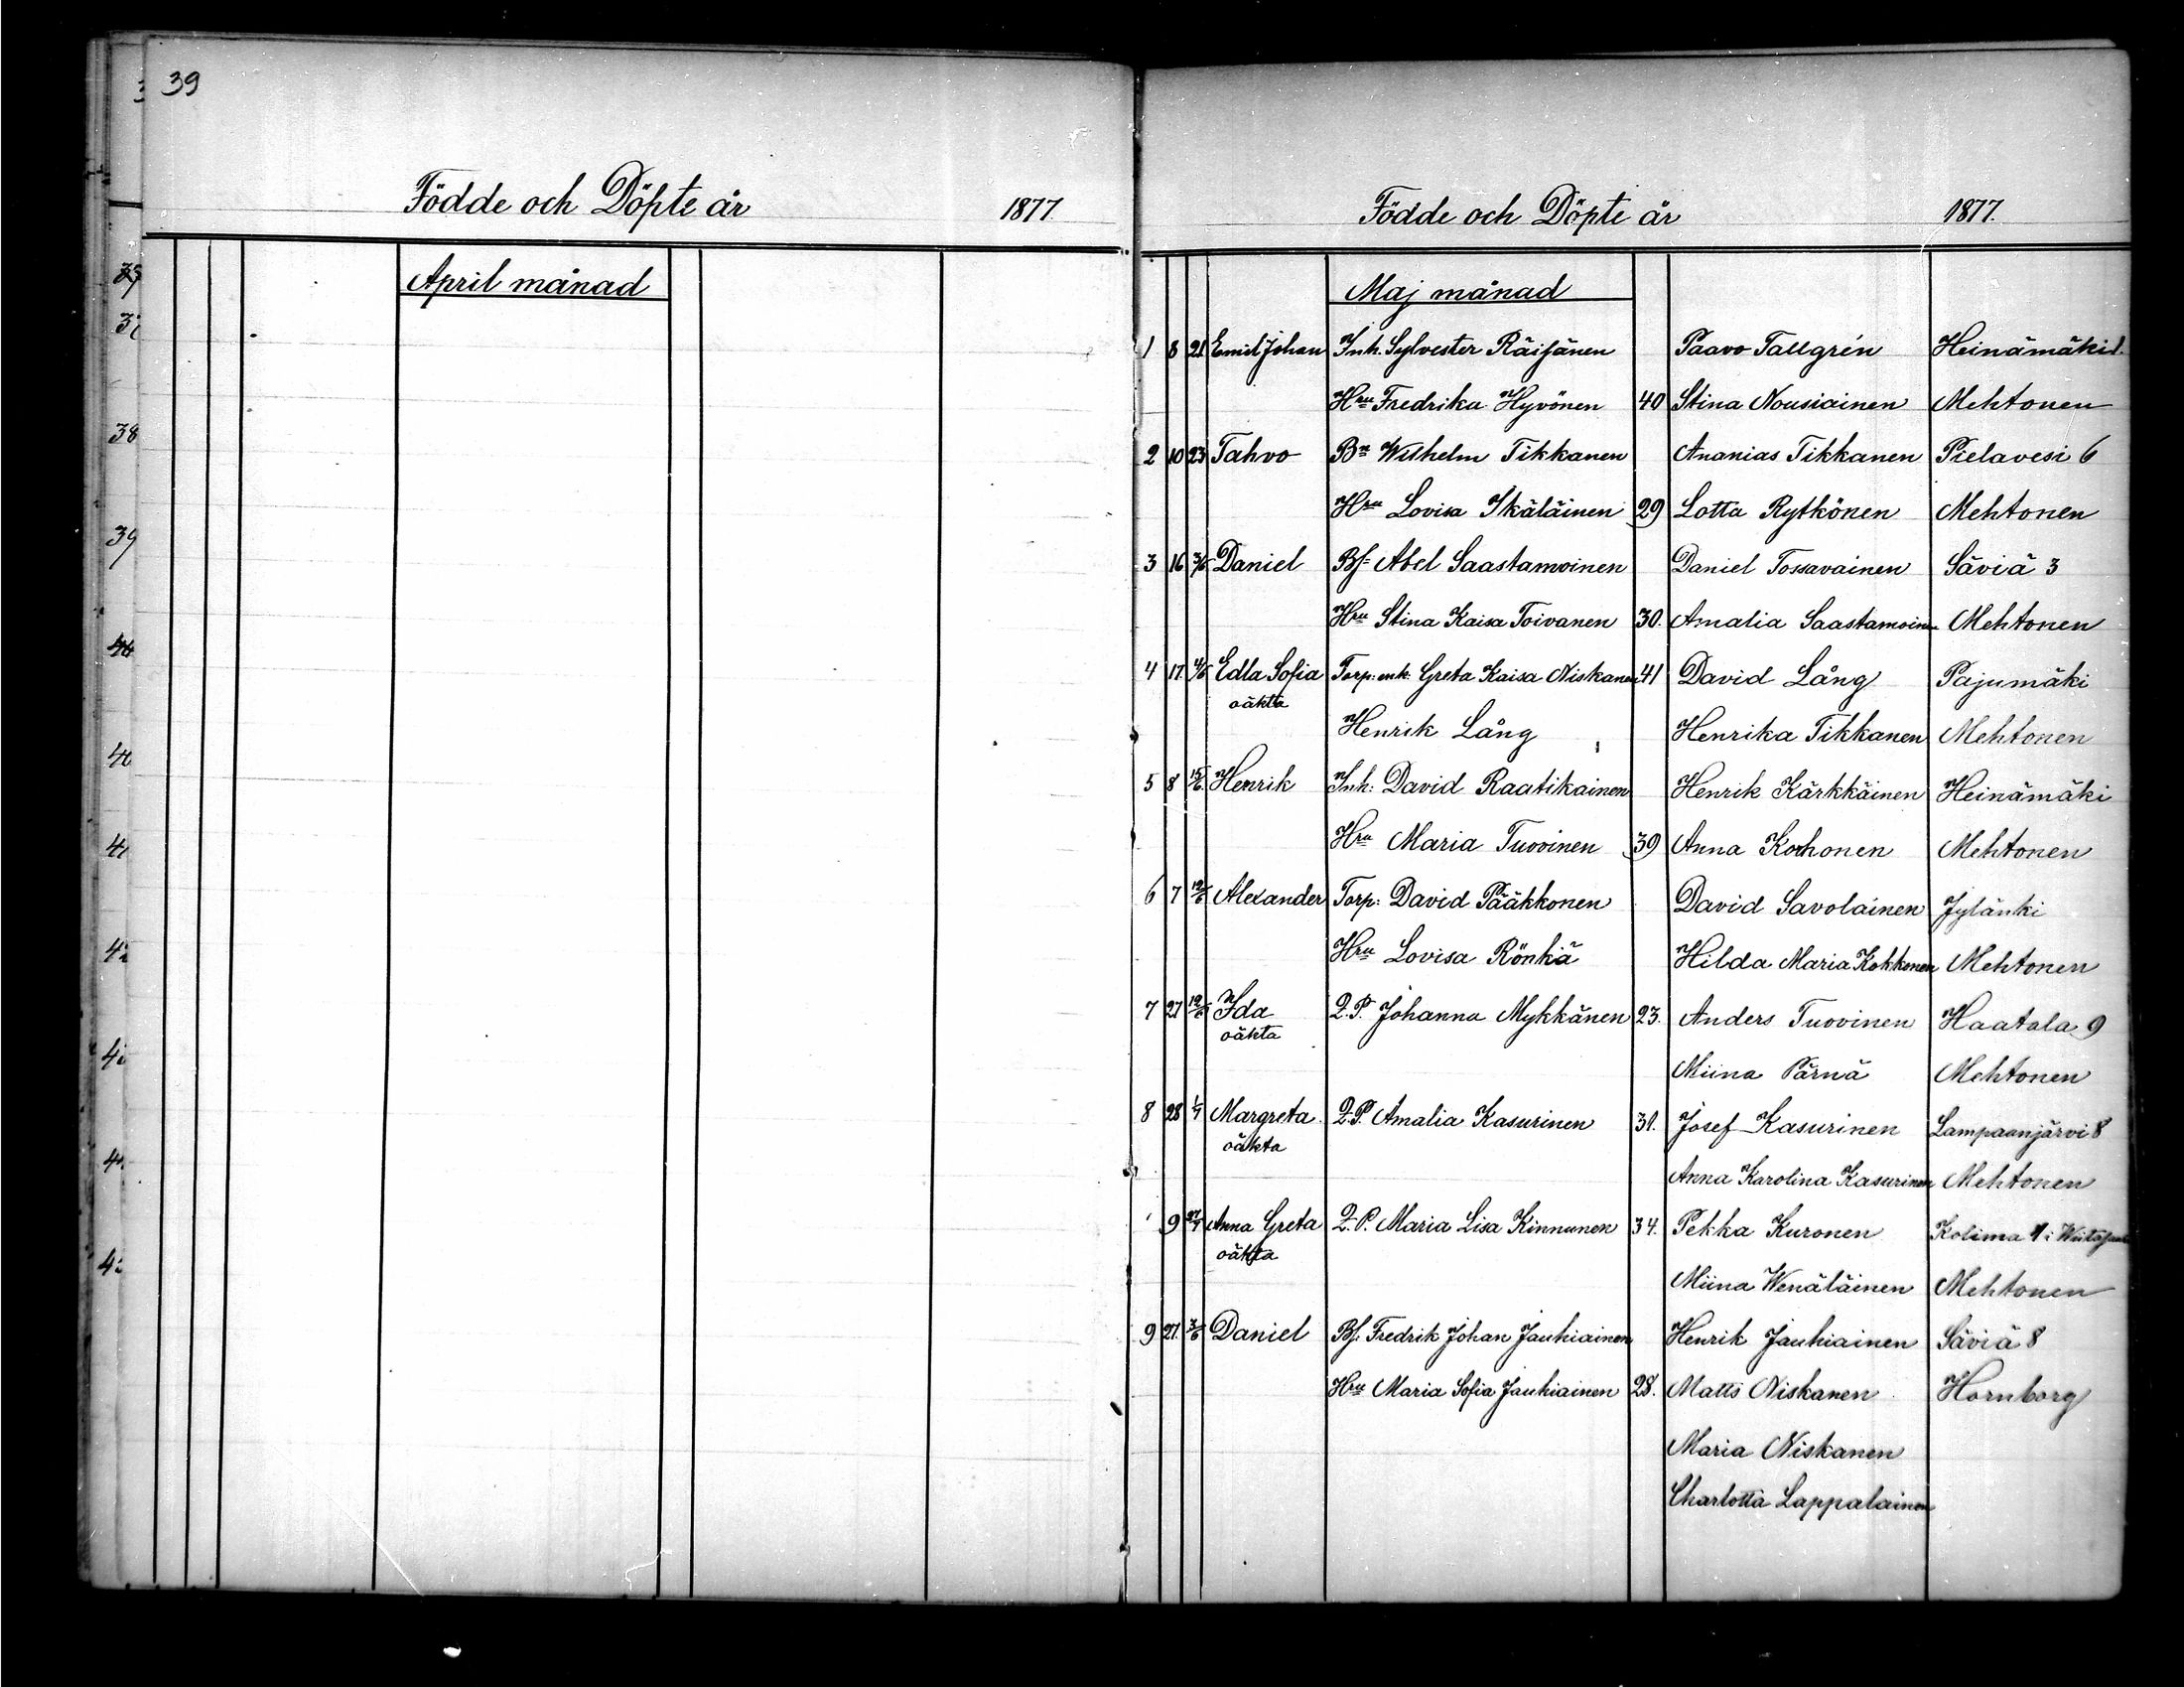 39
Födde och Döpte år 1877.
April månad
39
38
39
Födde och Döpte år 1877.
Maj månad
1 8 21 Emil Johan Inh. Sylvester Räisänen Paavo Tallgrén Heinämäki 1.
Hru Fredrika Hyvönen 40 Stina Nousiainen Mehtonen
2 10 23 Tahvo Bn Wilhelm Tikkanen Ananias Tikkanen Pielavesi 6
Hru Lovisa Ikäläinen 29 Lotta Rytkönen Mehtonen
3 16 3/6 Daniel Bf Abel Saastamoinen Daniel Tossavainen Säviä 3
Hru Stina Kaisa Toivanen 30. Amalia Saastamoinen Mehtonen
4 17. 4/6 Edla Sofia Torp: enk: Greta Kaisa Niskanen 41 David Lång Pajumäki
oäkta
Henrik Lång Henrika Tikkanen Mehtonen
5 8 15/6 Henrik Inh: David Raatikainen Henrik Kärkkäinen Heinämäki
Hru Maria Tuovinen 39 Anna Korhonen Mehtonen
6 7 12/6 Alexander Torp: David Pääkkonen David Savolainen Jylänki
Hru Lovisa Rönkä Hilda Maria Kokkonen Mehtonen
7 27 12/6 Ida Q.P. Johanna Mykkänen 23. Anders Tuovinen Haatala 9
oäkta
Miina Pärnä Mehtonen
8 28 1/7 Margreta Q.P. Amalia Kasurinen 31. Josef Kasurinen Lampaanjärvi 8
oäkta
Anna Karolina Kasurinen Mehtonen
9 Anna Greta Q.P. Maria Lisa Kinnunen 34. Pekka Kuronen Kolima
oäkta
Miina Wenäläinen Mehtonen
9 27. 3/6 Daniel Bf. Fredrik Johan Jauhiainen Henrik Jauhiainen Säviä 8
Hru Maria Sofia Jauhiainen 28. Matts Niskanen Hornborg
Maria Niskanen
Charlotta Lappalainen